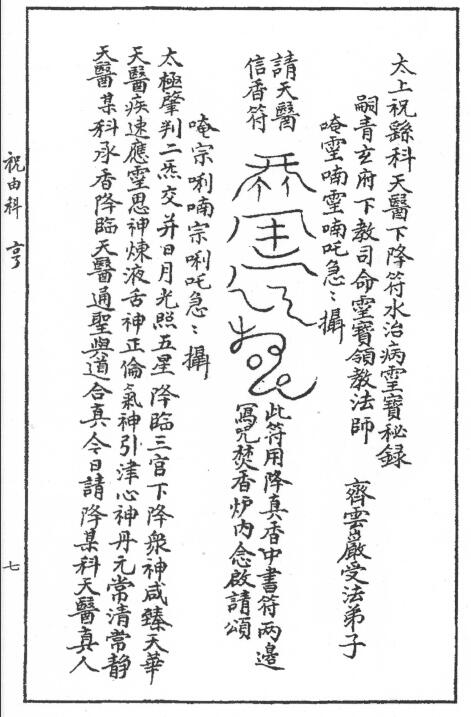 太上祝繇科天醫下降符水治病靈寶秘録
嗣青玄府下教司命靈寶領教法師 齊雲巖受法弟子
唵靈喃靈喃吒急〻攝
請天醫
信香符
此符用降真香中書符两邊
寫咒焚香炉内念啟請頌
唵宗唎喃宗唎吒急〻攝
太極肇判二炁交并日月光照五星降臨三官下降衆神咸臻天華
天醫疾速應靈思神煉液舌神正倫氣神引津心神丹元常清常静
天醫某科承香降臨天醫通聖與道合真今日請降某科天醫真人
祝由科 亨
七